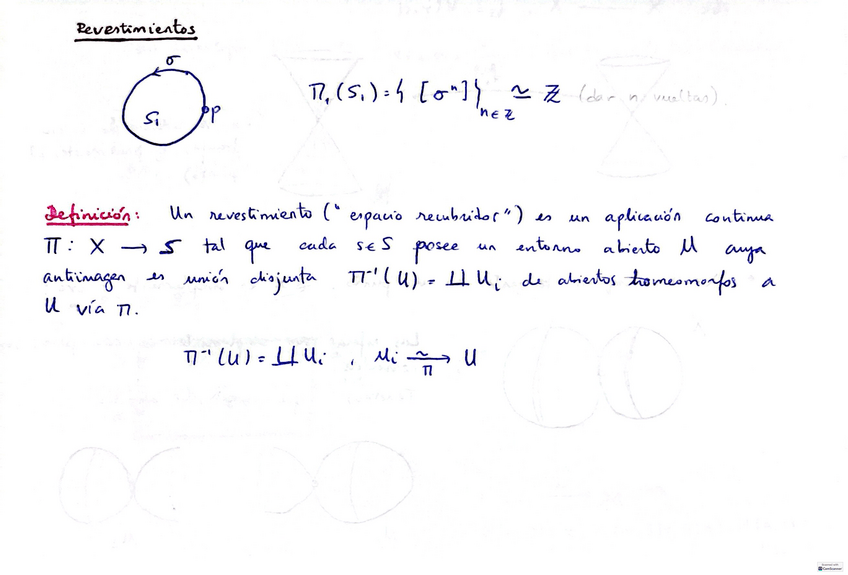 Revestimientos
σ
S₁
p
Π₁(S₁) = { [σⁿ] }n∈ℤ ≃ ℤ (dar n vueltas).
Definición: Un revestimiento ("espacio recubridor") es un aplicación continua
Π: X → S tal que cada s∈S posee un entorno abierto U cuya
antiimagen es unión disjunta Π⁻¹(U) = ⨿ Uᵢ de abiertos homeomorfos a
U vía Π.
Π⁻¹(U) = ⨿ Uᵢ , Uᵢ ≃→ U
Π
CamScanner